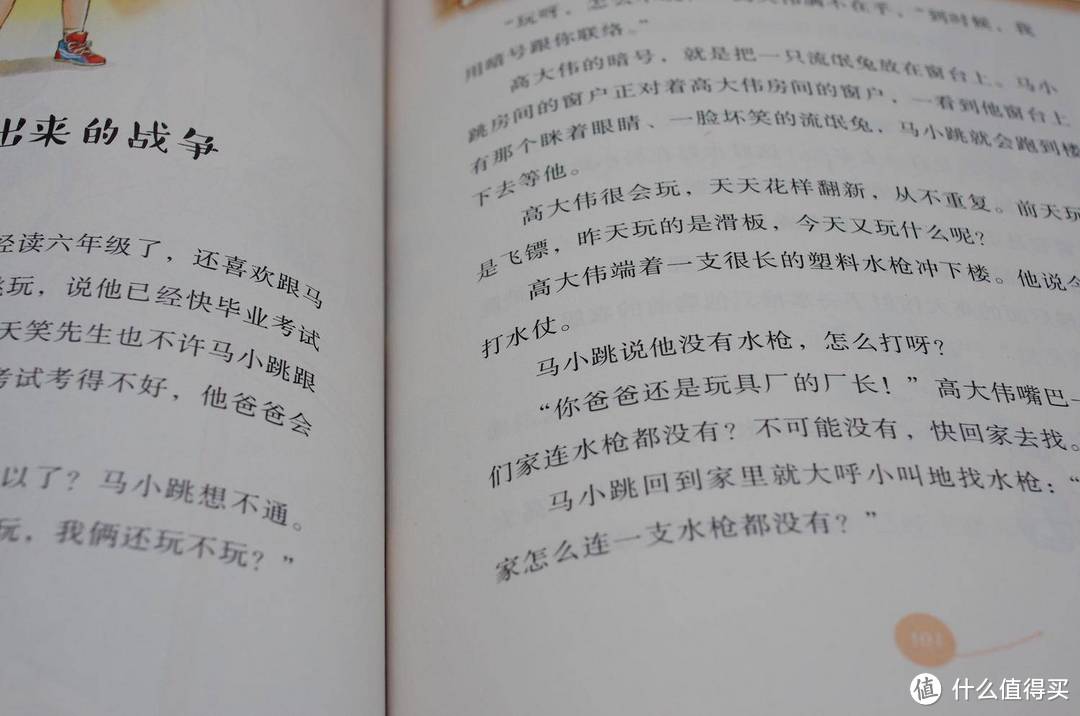 出来的战争
经读六年级了，还喜欢跟马
跳玩，说他已经快毕业考试
天笑先生也不许马小跳跟
考试考得不好，他爸爸会
以了？马小跳想不通。
玩，我俩还玩不玩？”
“玩呀，怎么不 满不在乎，“到时候，我
用暗号跟你联络。”
高大伟的暗号，就是把一只流氓兔放在窗台上。马小
跳房间的窗户正对着高大伟房间的窗户，一看到他窗台上
有那个眯着眼睛、一脸坏笑的流氓兔，马小跳就会跑到楼
下去等他。
高大伟很会玩，天天花样翻新，从不重复。前天玩
是飞镖，昨天玩的是滑板，今天又玩什么呢？
高大伟端着一支很长的塑料水枪冲下楼。他说今
打水仗。
马小跳说他没有水枪，怎么打呀？
“你爸爸还是玩具厂的厂长！”高大伟嘴巴一
们家连水枪都没有？不可能没有，快回家去找。
马小跳回到家里就大呼小叫地找水枪：“
家怎么连一支水枪都没有？”
101
值 什么值得买